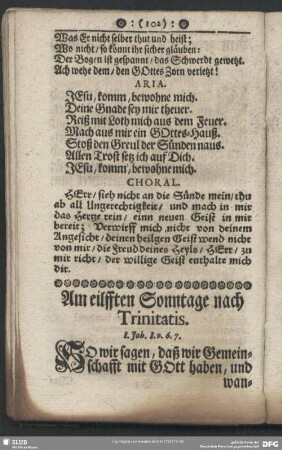 : (102) :
Was Er nicht selber thut und heist;
Wo nicht, so kömt ihr sicher gläuben:
Der Bogen ist gespannt, das Schwerdt gewetzt.
Ach wehe dem, den GOttes Zorn verletzt!
ARIA.
JEsu, komm, bewohne mich.
Deine Gnade sey mir theuer.
Reiß mit Loth mich aus dem Feuer.
Mach aus mir ein GOttes-Hauß.
Stoß den Greul der Sünden naus.
Allen Trost setz ich auf Dich.
JEsu, komm, bewohne mich.
CHORAL.
HErr, sieh nicht an die Sünde mein, thu
ab all Ungerechtigkeit, und mach in mir
das Hertze rein, einn neuen Geist in mir
bereit; Verwirff mich nicht von deinem
Angesicht, deinen heilgen Geist wend nicht
von mir, die Freud deines Heyls, HErr, zu
mir richt, der willige Geist enthalte mich
dir.
Am eilfften Sonntage nach
Trinitatis.
1. Joh. I. v. 6. 7.
SO wir sagen, daß wir Gemein-
schafft mit GOtt haben, und
wan-
SLUB
DFG